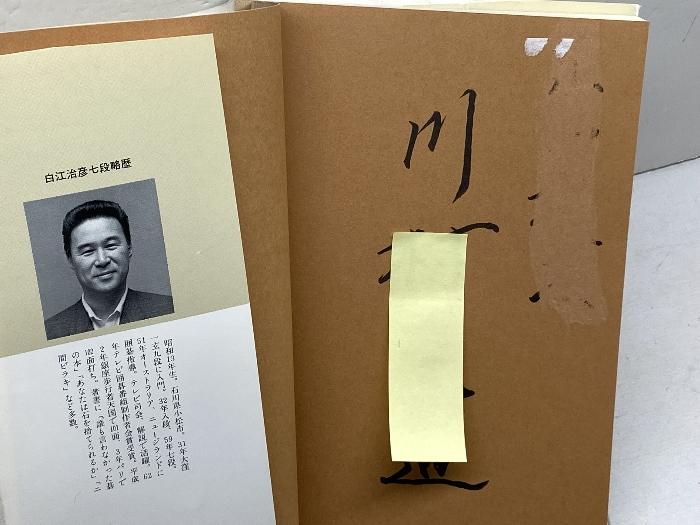 白江治彦七段略歴
昭和13年生。石川県小松市。31年大窪
一玄九段に入門。32年入段、59年七段。
51年オーストラリア、ニュージランドに
囲碁指導。テレビ司会、解説で活躍、62
年テレビ囲碁番組制作者会賞受賞。平成
2年銀座歩行者天国で101面、3年パリで
102面打ち。著書に「誰も言わなかった碁
の本」「あなたは石を捨てられるか」「二
間ビラキ」など多数。
川